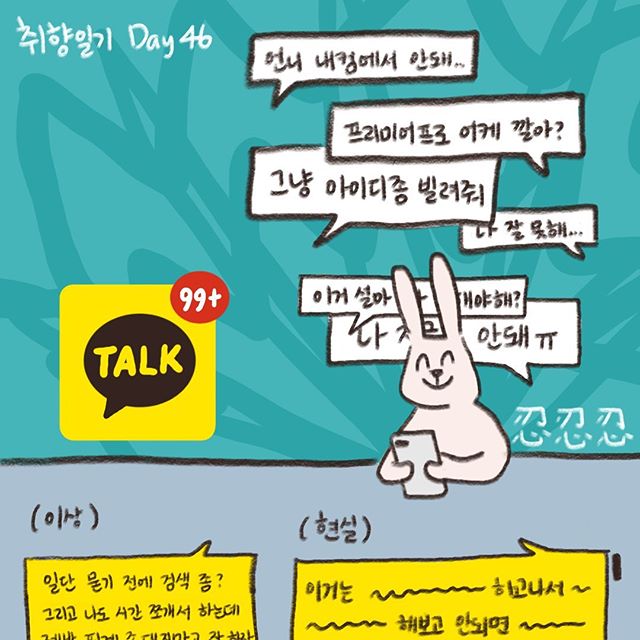 취향일기 Day 46
언니 내컴에서 안돼...
프리미어프로 어케 깔아?
그냥 아이디좀 빌려줘
나 잘 못해...
이거 설마 해야해?
나 안돼 ㅠ
99+
TALK
忍忍忍
(이상)
(현실)
일단 묻기 전에 검색 좀?
그리고 나도 시간 쪼개서 하는데
이거는 하고나서
해보고 안되면